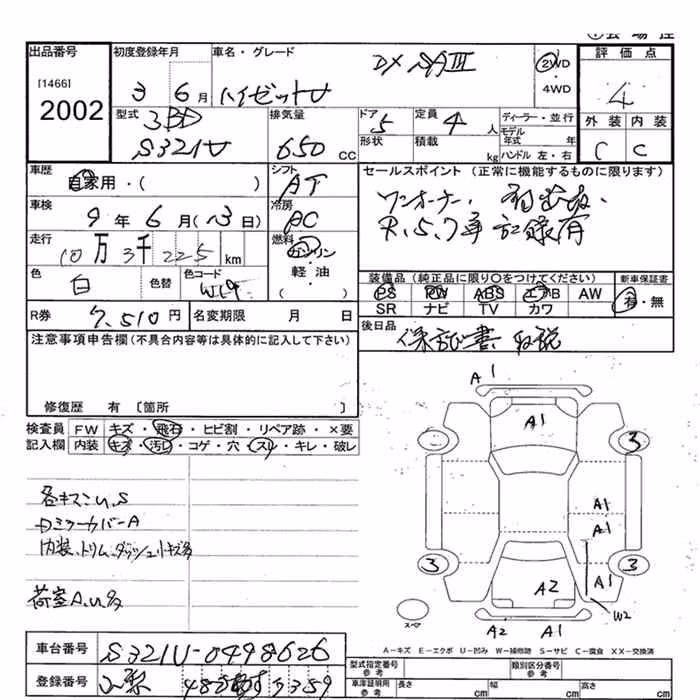 出品番号 初度登録年月 車名・グレード 評価点
[1466]
2002
3 6月 ハイゼットV DX SAⅢ 2WD・4WD
4
型式 3BD
S321V
排気量 650 CC
ドア 5
形状
定員 4 人
積載 kg
ディーラー・並行
モデル年式 年
ハンドル 左・右
外装 内装
C C
車歴 自家用・( )
シフト AT
セールスポイント(正常に機能するものに限ります)
ワンオーナー、
R、5、7 記録有
車検 9年6月(13日)
冷房 AC
走行 10万3千225 km
燃料 ガソリン・軽・油 ( )
色 白 色替 色コード W19
装備品(純正品に限り○をつけてください) 新車保証書
PS PW ABS エアB AW 有・無
SR ナビ TV カワ
R券 7,510円 名変期限 月 日
後日品 保証書 取説
注意事項申告欄(不具合内容等は具体的に記入して下さい)
修復歴 有 〔箇所 〕
検査員 FW キズ・飛石・ヒビ割・リペア跡・×要
記入欄 内装 キズ・汚し・コゲ・穴・スレ・キレ・破レ
A1
A1
3 3
A1
A1
3 3
A2 A1
W2
A2 A1
スペア
各キズ U、S
ミラーカバーA
内装、トリム、ダッシュ キズ多
荷室A、U、多
A−キズ E−エクボ U−凹み W−補修跡 S−サビ C−腐食 XX−交換済
車台番号 S321V-0498626
型式指定番号 参考 類別区分番号 参考
登録番号 山梨 480 3359
車庫証明用 参考 長さ cm 幅 cm 高さ cm